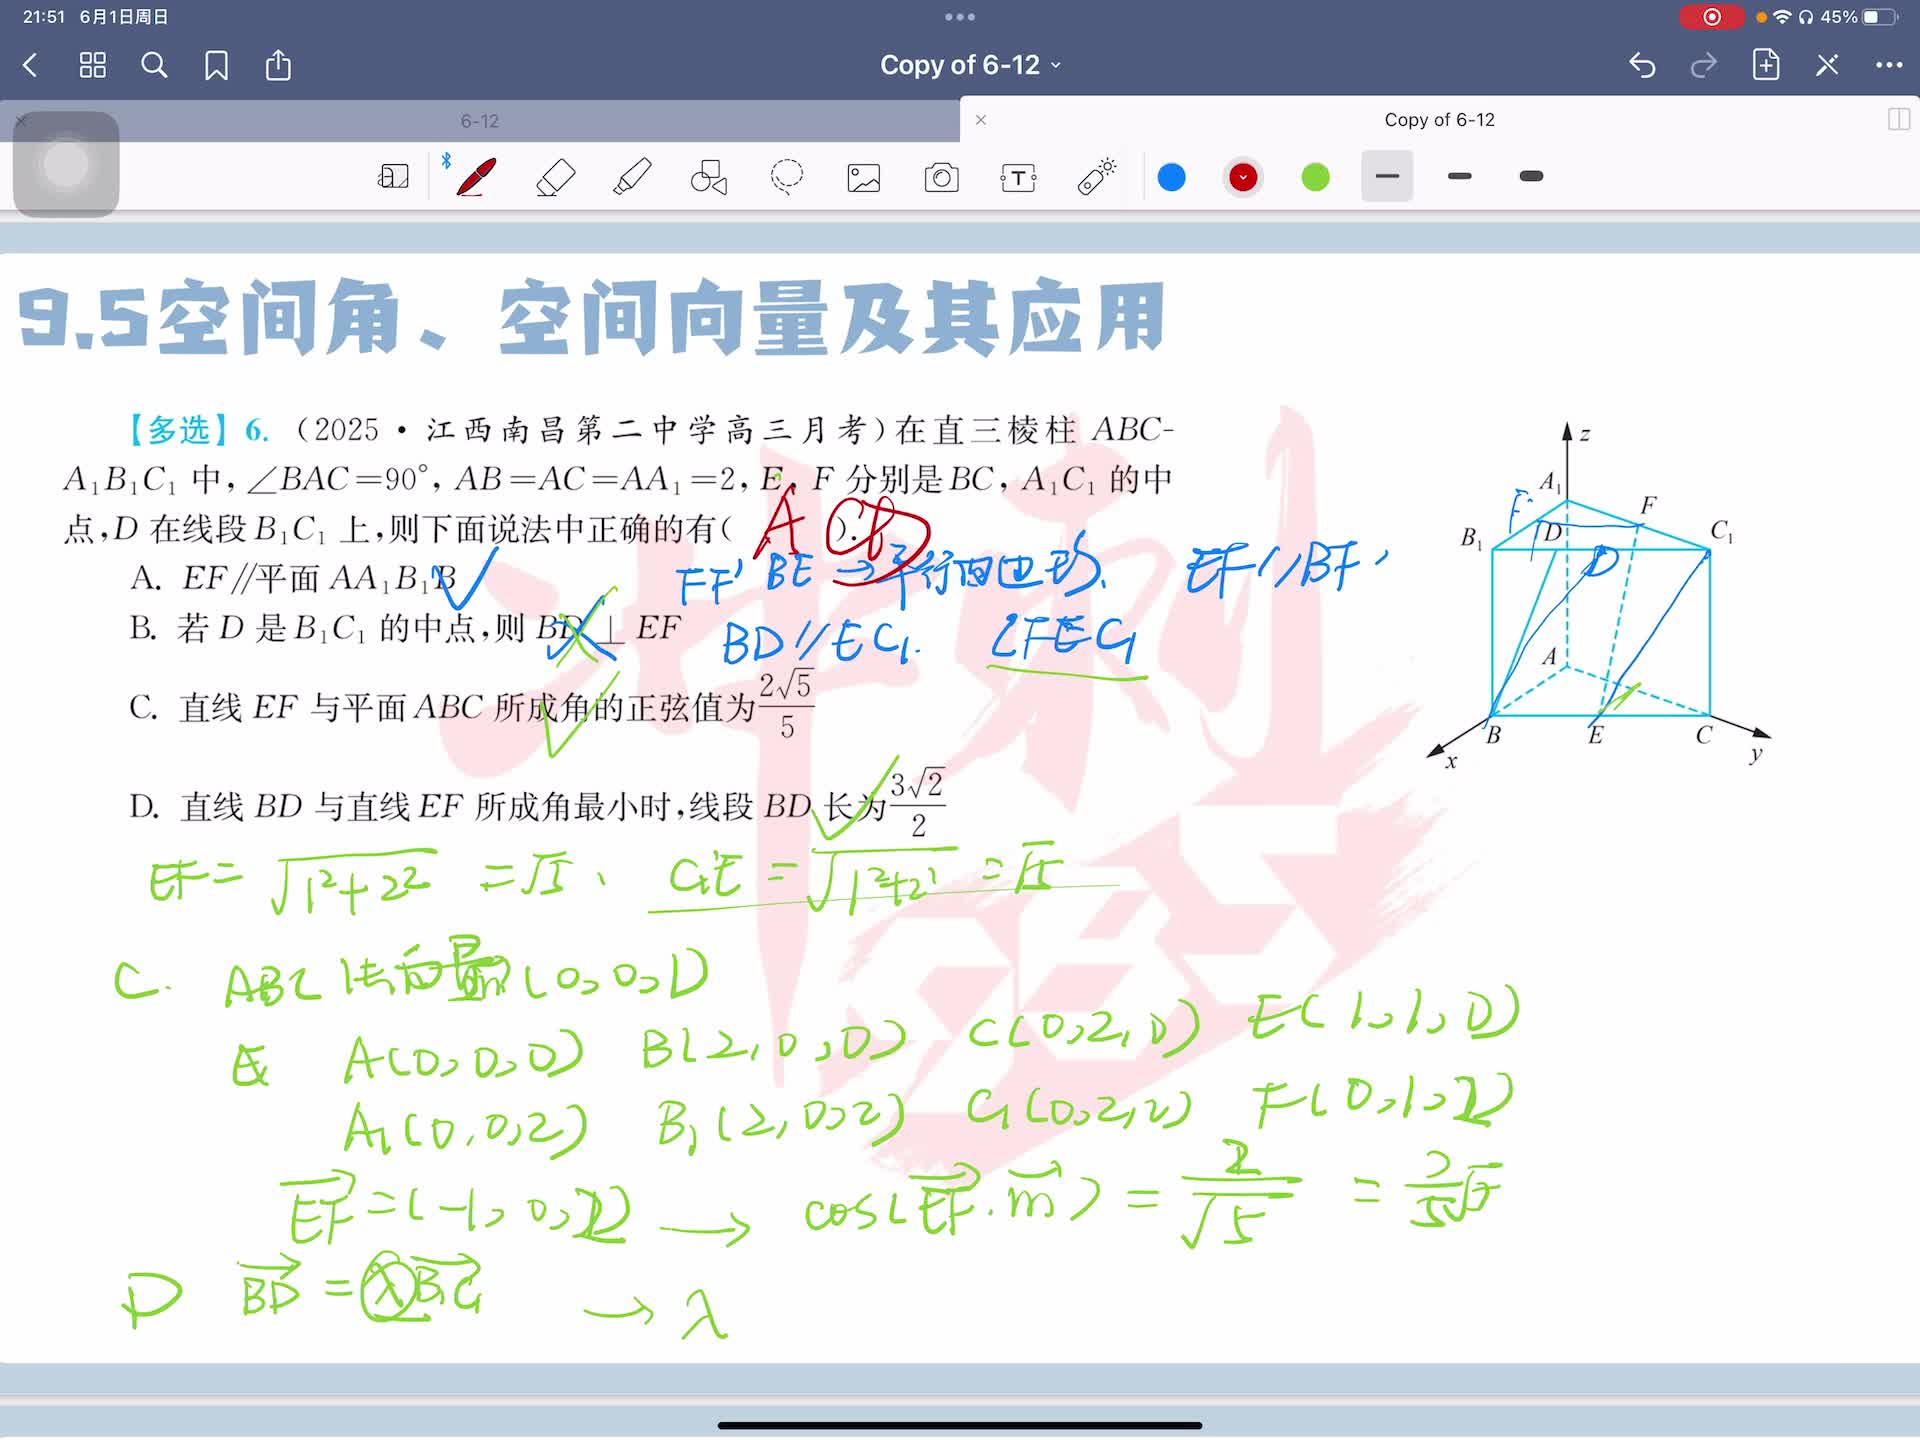 21:51 6月1日周日
45%
Copy of 6-12
6-12
Copy of 6-12
9.5空间角、空间向量及其应用
【多选】6.（2025·江西南昌第二中学高三月考)在直三棱柱 ABC-
A₁B₁C₁ 中,∠BAC=90°, AB=AC=AA₁=2, E, F 分别是 BC, A₁C₁ 的中
点, D 在线段 B₁C₁ 上,则下面说法中正确的有(  ).
A C
A. EF//平面 AA₁B₁B
FF' BE → 平行四边形 EF//BF'
B. 若 D 是 B₁C₁ 的中点,则 BD⊥EF
BD//EC₁. ∠FEC₁
C. 直线 EF 与平面 ABC 所成角的正弦值为 2√5/5
D. 直线 BD 与直线 EF 所成角最小时,线段 BD 长为 3√2/2
z
A₁
F'
F
B₁
D
D
C₁
A
B
E
C
x
y
EF = √1²+2² = √5、 C₁E = √1²+2² = √5
C. ABC 法向量 (0,0,1)
A(0,0,0) B(2,0,0) C(0,2,0) E(1,1,0)
A₁(0,0,2) B₁(2,0,2) C₁(0,2,2) F(0,1,2)
EF = (-1,0,2) → cos(EF·m) = 2/√5 = 2/5√5
D BD = λB₁C₁ → λ